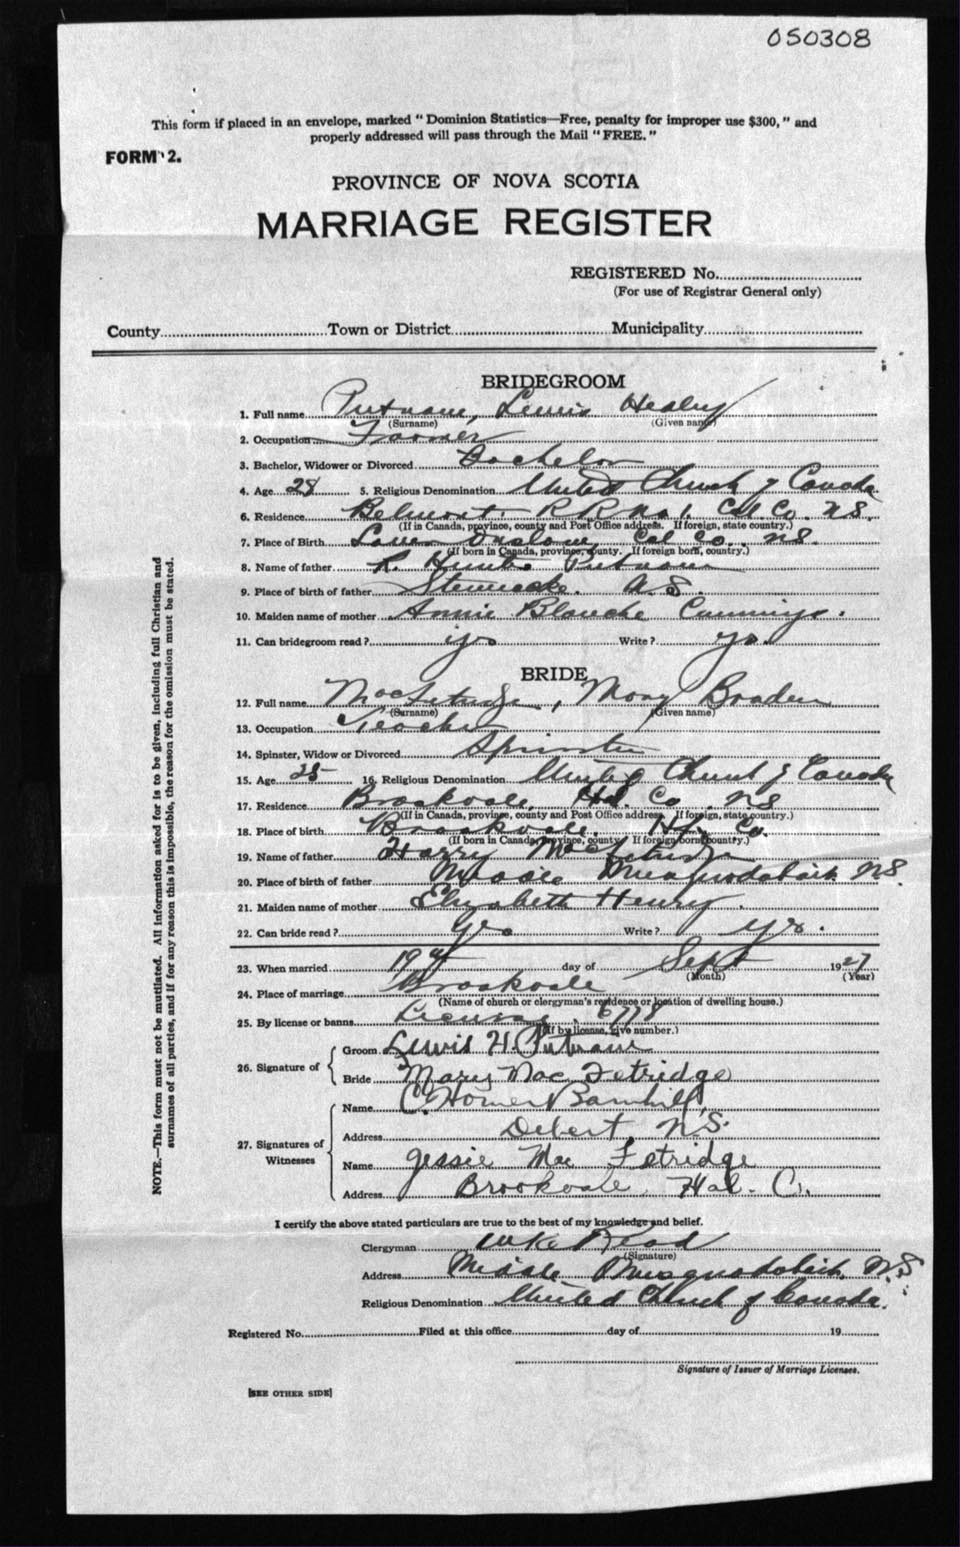 050308
This form if placed in an envelope, marked "Dominion Statistics—Free, penalty for improper use $300," and
properly addressed will pass through the Mail "FREE."
FORM 2.
PROVINCE OF NOVA SCOTIA
MARRIAGE REGISTER
REGISTERED No.
(For use of Registrar General only)
County Town or District Municipality
BRIDEGROOM
1. Full name Putnam, Lewis Healey
(Surname) (Given name)
2. Occupation Farmer
3. Bachelor, Widower or Divorced Bachelor
4. Age 28 5. Religious Denomination United Church of Canada
6. Residence Belmont R R No 1. Col. Co. N.S.
(If in Canada, province, county and Post Office address. If foreign, state country.)
7. Place of Birth Lower Onslow, Col Co., N.S.
(If born in Canada, province, county. If foreign born, country.)
8. Name of father Putnam
9. Place of birth of father Stewiacke. N.S.
10. Maiden name of mother Annie Blanche Cummings.
11. Can bridegroom read? yes Write? yes.
BRIDE
12. Full name MacFetridge, Mary Braden
(Surname) (Given name)
13. Occupation Teacher
14. Spinster, Widow or Divorced Spinster
15. Age 25 16. Religious Denomination United Church of Canada
17. Residence Brookvale, Co. NS
(If in Canada, province, county and Post Office address. If foreign, state country.)
18. Place of birth Brookvale. Hfx. Co.
(If born in Canada, province, county. If foreign born, country.)
19. Name of father Harry MacFetridge
20. Place of birth of father Middle Musquodoboit N.S.
21. Maiden name of mother Elizabeth Henry.
22. Can bride read? Yes Write? yes.
23. When married day of Sept 1927
(Month) (Year)
24. Place of marriage Brookvale
(Name of church or clergyman's residence or location of dwelling house.)
25. By license or banns License. 6778
(If by license, give number.)
26. Signature of
Groom Lewis H. Putnam
Bride Mary MacFetridge
27. Signatures of Witnesses
Name C. Homer Barnhill,
Address Debert, N.S.
Name Jessie MacFetridge
Address Brookvale, Hal. Co.
I certify the above stated particulars are true to the best of my knowledge and belief.
Clergyman Read
(Signature)
Address Middle Musquodoboit, N.S.
Religious Denomination United Church of Canada.
Registered No. Filed at this office day of 19
Signature of Issuer of Marriage Licenses.
[SEE OTHER SIDE]
NOTE.—This form must not be mutilated. All information asked for is to be given, including full Christian and
surnames of all parties, and if for any reason this is impossible, the reason for the omission must be stated.